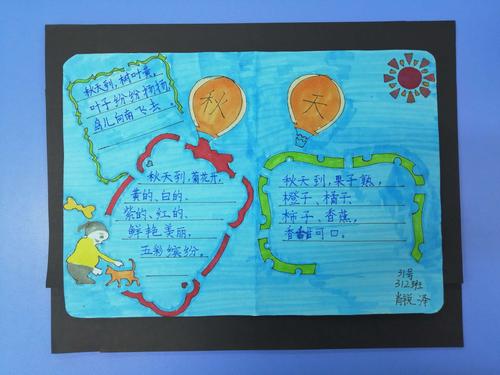 秋天
秋天到，树叶黄，
叶子纷纷扬扬
鸟儿向南飞去。
秋天到，菊花开，
黄的、白的、
紫的、红的、
鲜艳美丽，
五彩缤纷。
秋天到，果子熟，
橙子、橘子、
柿子、香蕉，
香甜可口。
31号
312班
肖锐泽